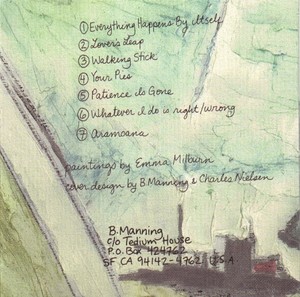 ① Everything Happens By Itself
② Lover's Leap
③ Walking Stick
④ Your Pies
⑤ Patience Is Gone
⑥ Whatever I do is right/wrong
⑦ Aramoana
paintings by Emma Milburn
cover design by B. Manning & Charles Nielsen
B. Manning
c/o Tedium House
P.O. Box 424762
SF CA 94142-4762 U.S.A